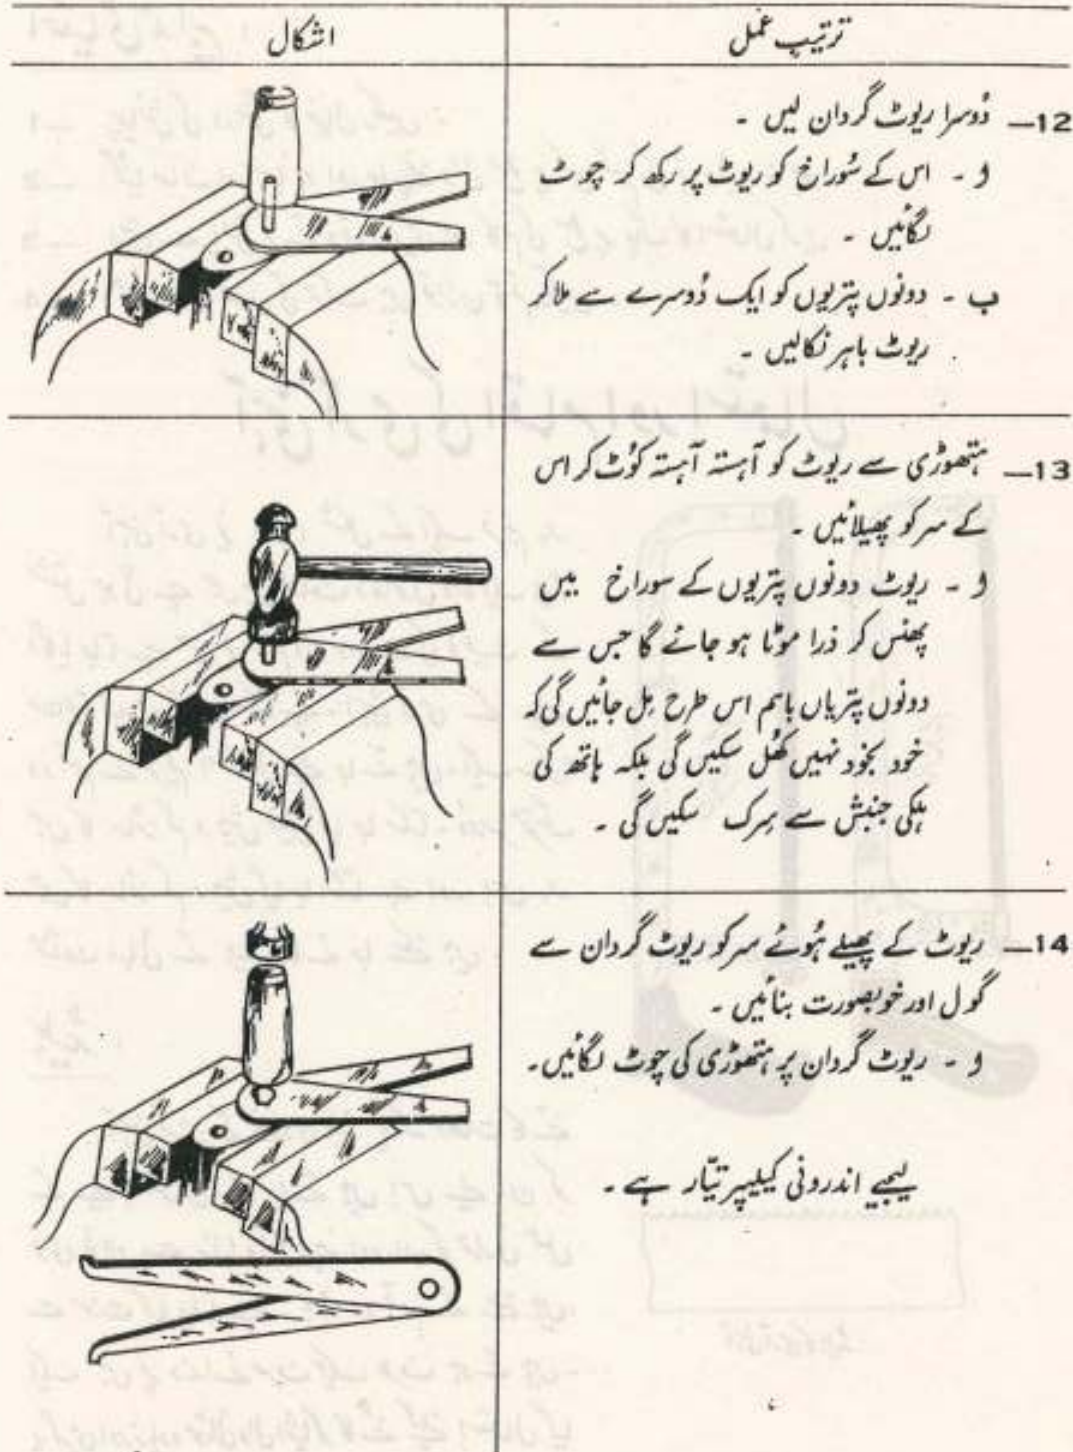 ترتیب عمل
اشکال
12— دُوسرا ریوٹ گردان لیں ۔
و ۔ اس کے سُوراخ کو ریوٹ پر رکھ کر چوٹ
لگائیں ۔
ب ۔ دونوں پتریوں کو ایک دُوسرے سے ملا کر
ریوٹ باہر نکالیں ۔
13— ہتھوڑی سے ریوٹ کو آہستہ آہستہ کوُٹ کر اس
کے سر کو پھیلائیں ۔
و ۔ ریوٹ دونوں پتریوں کے سوراخ میں
پھنس کر ذرا موٹا ہو جائے گا جس سے
دونوں پتریاں باہم اس طرح مِل جائیں گی کہ
خود بخود نہیں کھُل سکیں گی بلکہ ہاتھ کی
ہلکی جنبش سے سِرک سکیں گی ۔
14— ریوٹ کے پھیلے ہُوئے سر کو ریوٹ گردان سے
گول اور خوبصورت بنائیں ۔
و ۔ ریوٹ گردان پر ہتھوڑی کی چوٹ لگائیں۔
لیجیے اندرونی کیلیپر تیّار ہے ۔